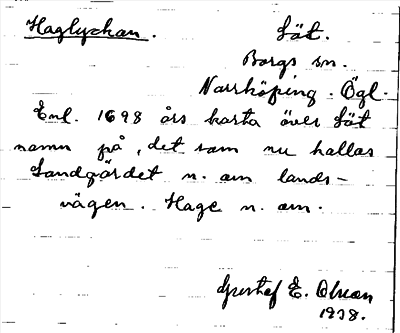 Haglyckan. Löt.
Borgs sn.
Norrköping. Ögl.
Enl. 1698 års karta över Löt
namn på, det som nu kallas
Sandgärdet n. om lands-
vägen. Hage n. om.
Gustaf E. Olsson
1938.